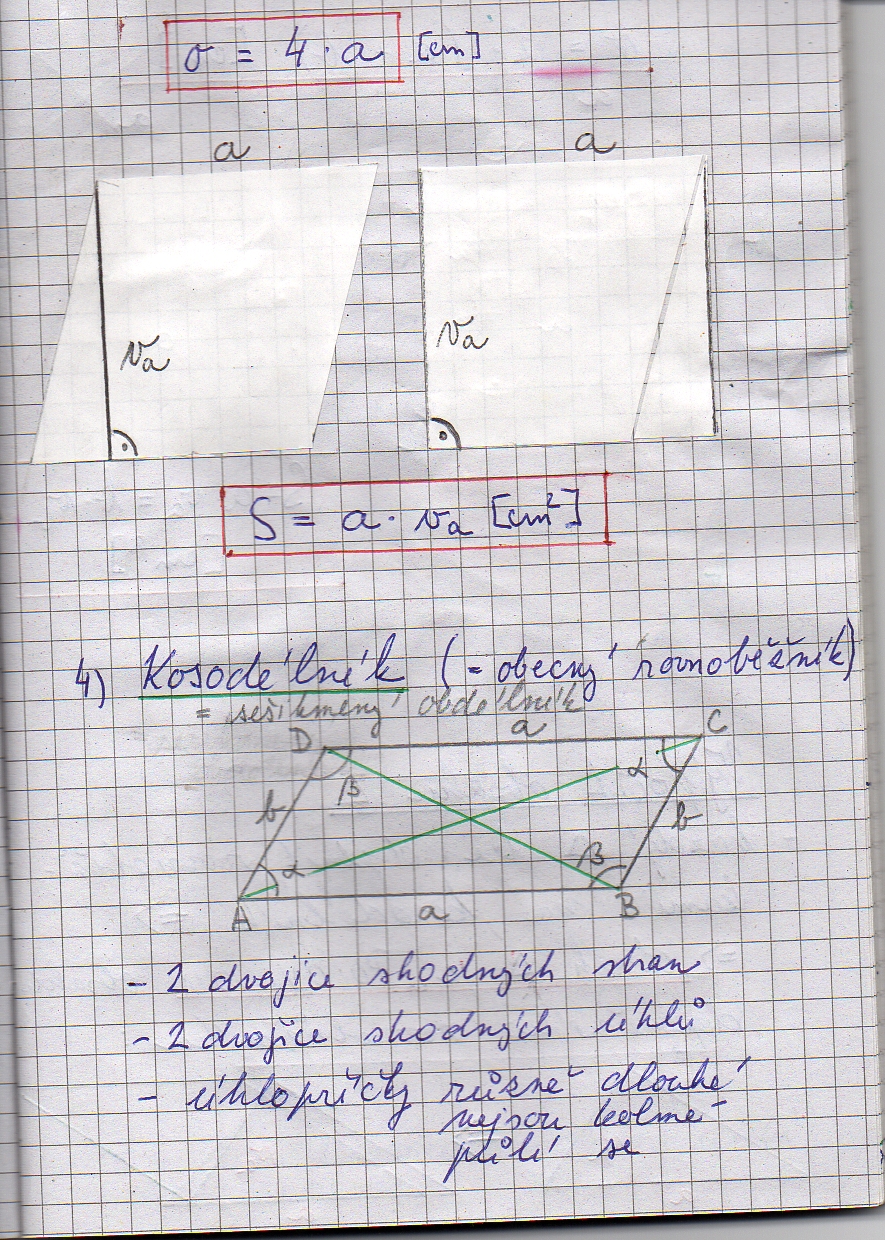 σ = 4 · a [cm]
a a
va va
S = a · va [cm²]
4) Kosodélník (= obecný rovnoběžník)
= sešikmený obdélník
D a C
β α
b b
α β
A a B
- 2 dvojice shodných stran
- 2 dvojice shodných úhlů
- úhlopříčky různě dlouhé
nejsou kolmé
půlí se